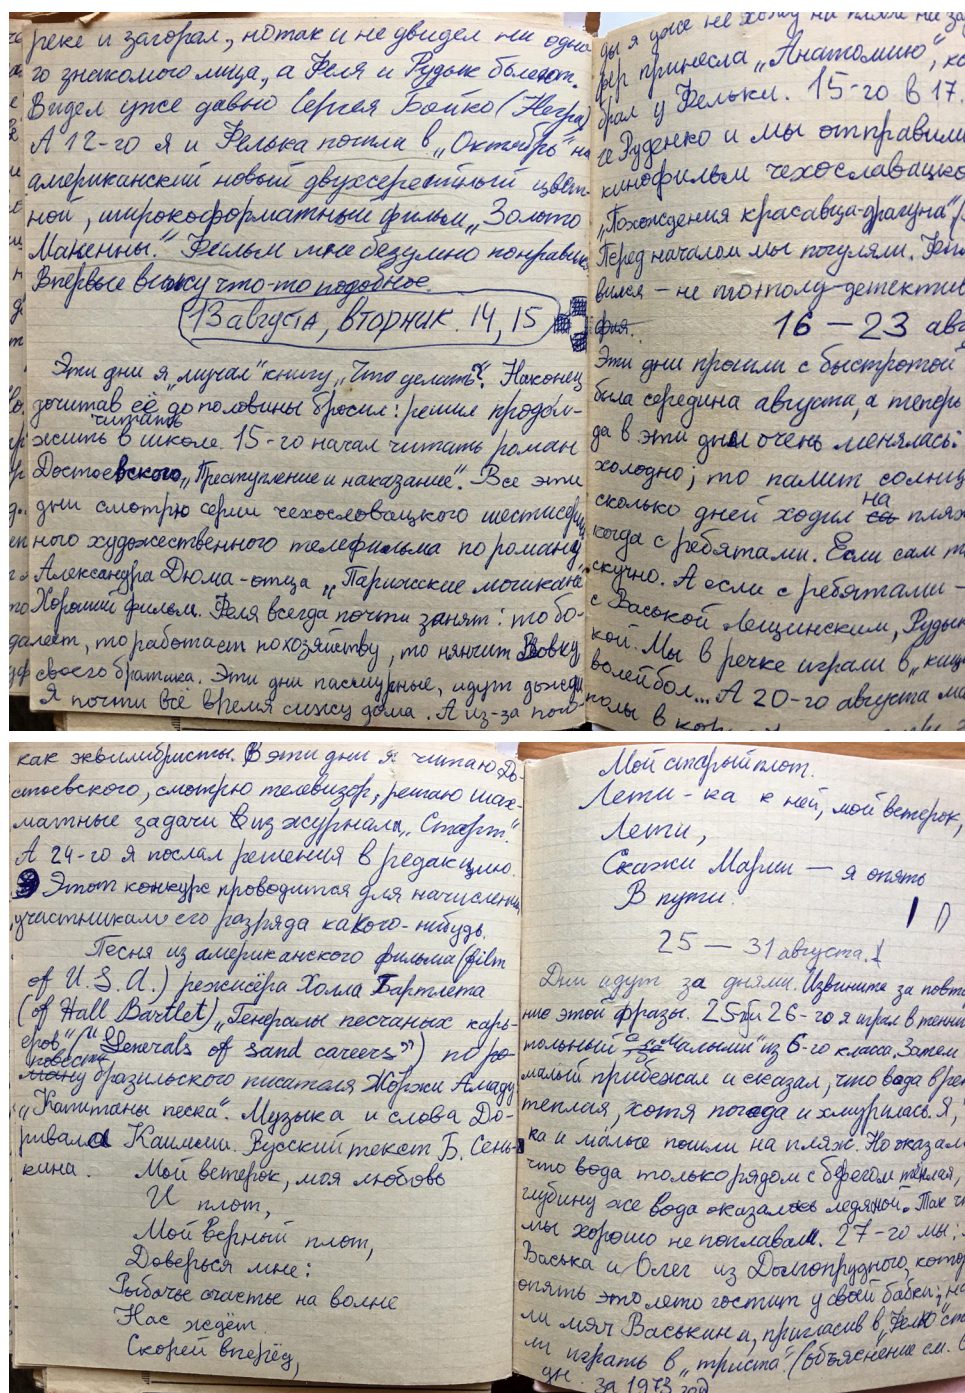 реке и загорал, но так и не двидел ни одно-
го знакомого лица, а Феля и Рудык болеют.
Видел уже давно Сергея Бойко (Негра)
А 12-го я и Фелька пошли в „Октябрь" на
американский новый двухсерейный цвет-
ной, широкоформатный фильм „Золото
Макенны". Фильм мне безумно понравился
Впервые вижу что-то подобное.
13 августа, вторник. 14, 15
Эти дни я „мучал" книгу „Что делать?". Наконец
дочитав её до половины бросил: решил продол-
читать
жить в школе. 15-го начал читать роман
Достоевского „Преступление и наказание". Все эти
дни смотрю серии чехословацкого шестисерий-
ного художественного телефильма по роману
Александра Дюма-отца „Парижские могикане
Хороший фильм. Феля всегда почти занят: то бо-
леет, то работает по хозяйству, то нянчит Вовку
своего братика. Эти дни пасмурные, идут дожди
Я почти всё время сижу дома. А из-за пого-
ды я уже не хожу на пляж
принесла „Анатомию",
брал у Фельки. 15-го в 17.
Руденко и мы отправили
кинофильм чехословацко
„Похождения красавца-драгуна"
Перед началом мы погуляли.
вился — не то полу-детектив
фия.
16 — 23 авг
Эти дни прошли с быстротой
была середина августа, а теперь
да в эти дни очень менялась:
холодно; то палит солнц
на
сколько дней ходил пляж
когда с ребятами. Если сам т
скучно. А если с ребятами —
с Васькой Лещинским, Рудык
кой. Мы в речке играли в „кищ
волейбол... А 20-го августа ма
полы в
как эквилибристы. В эти дни я читаю До-
стоевского, смотрю телевизор, решаю шах-
матные задачи из журнала „Старт".
А 24-го я послал решения в редакцию.
Этот конкурс проводится для начисления
участникам его разряда какого-нибудь.
Песня из американского фильма (film
of U.S.A.) режисёра Холла Бартлета
(of Hall Bartlet) „Генералы песчаных карь-
еров" ("Generals of sand careers") по ро-
повести
ману бразильского писателя Жоржи Амаду
„Капитаны песка". Музыка и слова До-
ривала Каимми. Русский текст Б. Сень-
кина.
Мой ветерок, моя любовь
И плот,
Мой верный плот,
Доверься мне:
Рыбачье счастье на волне
Нас ждёт
Скорей вперёд,
Мой старый плот.
Лети-ка к ней, мой ветерок,
Лети,
Скажи Марии — я опять
В пути.
25 — 31 августа.
Дни идут за днями. Извините за повто
ние этой фразы. 25 и 26-го я играл в тенни
тольный с „малыми" из 6-го класса. Затем
малый прибежал и сказал, что вода в ре
теплая, хотя погода и хмурилась. Я,
ка и малые пошли на пляж. Но оказал
что вода только рядом с берегом теплая,
глубину же вода оказалась ледяной. Так ч
мы хорошо не поплавали. 27-го мы:
Васька и Олег из Долгопрудного, котор
опять это лето гостит у своей бабки, на
ли мяч Васькин и, пригласив Фелю ст
ли играть в „триста" (объяснение см.
дн. за 1973 год